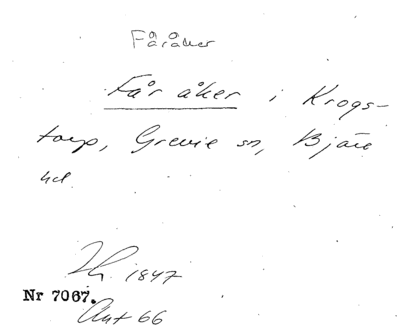 Fåråker
Får åker i Krogs-
torp, Grevie sn, Bjäre
hd.
Zh. 1847
Nr 7067.
Ant 66